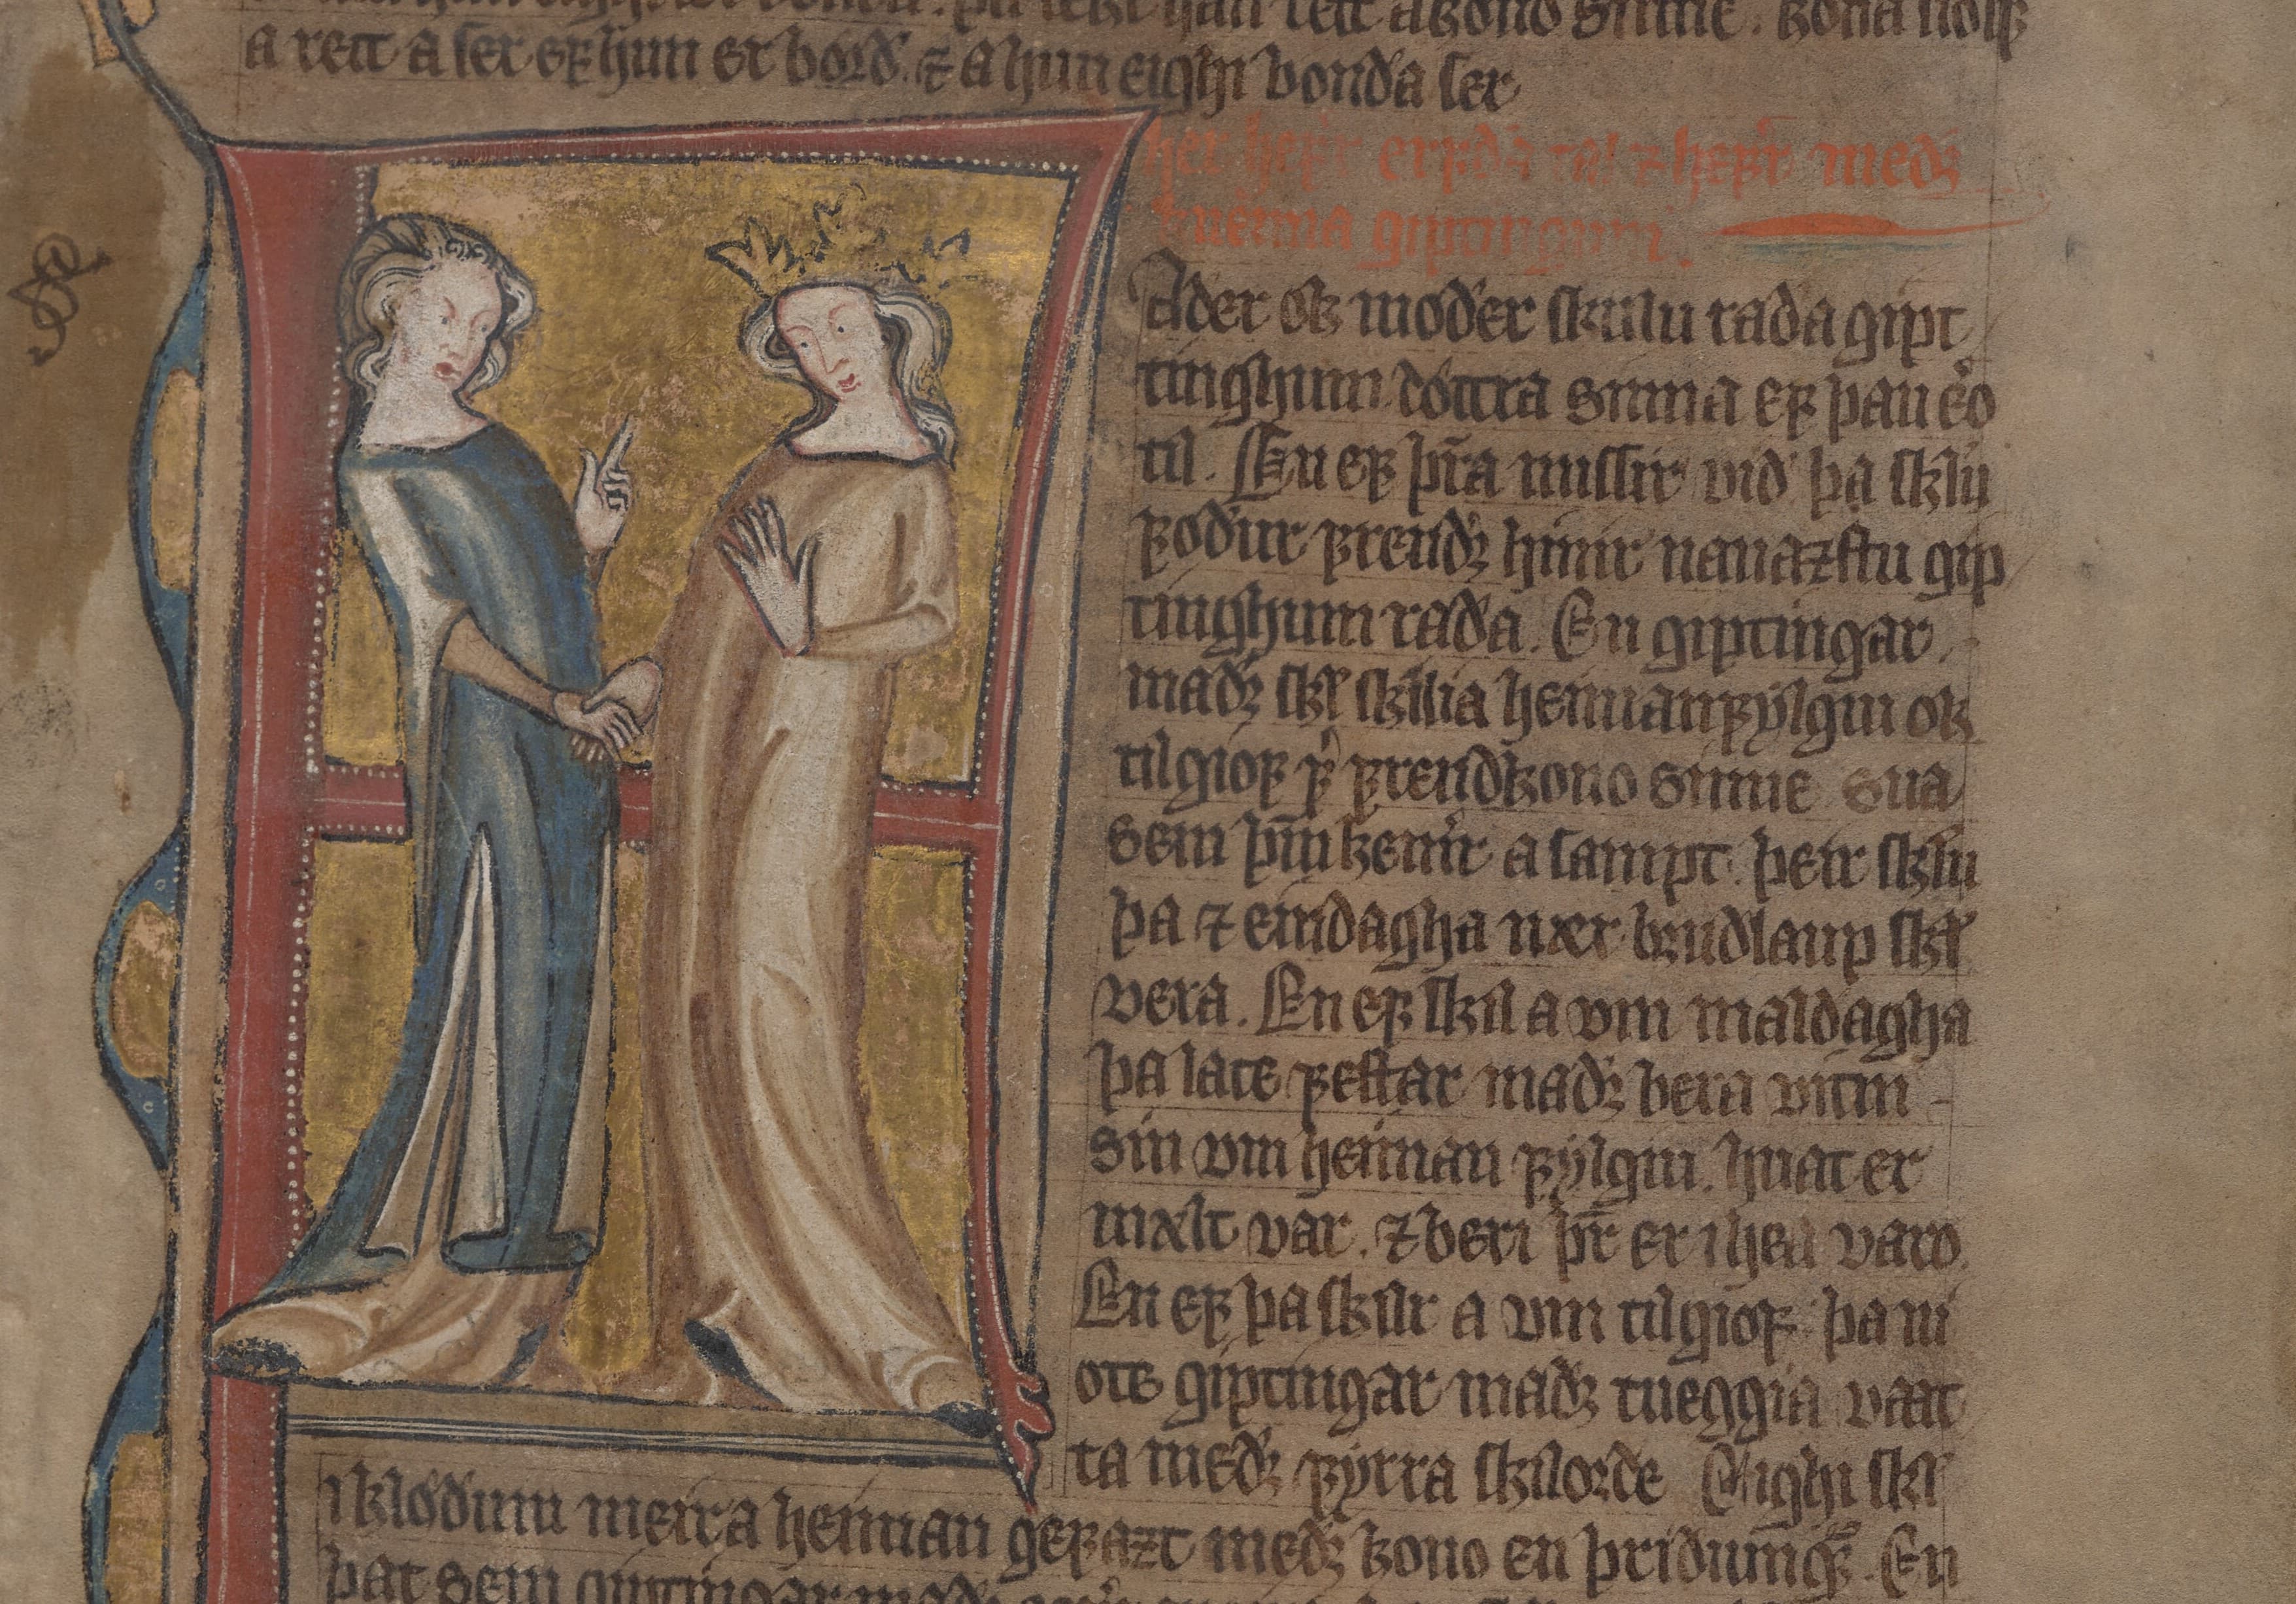 a rett a ser ef hun er bord. ⁊ a hun eighi bonda ser
her hefr erfða tal ⁊ hefr með
kuenna giptingum.
Ader ok moder skulu rada gipt
tinghum dóttra sinna ef þau ero
til. En ef þra missir vid þa sklu
fodur frendr hinir nanaztu gip
tinghum rada. En giptingar
madr skl skilia heimanfylgiu ok
tilgiof fr frendkono sinne sua
sem þm kemr a sampt. þeir sklu
þa ⁊ eindagha nær brudlaup skl
vera. En ef skil a vm maldagha
þa late festar madr bera vitni
sin vm heiman fylgiu. huat er
mælt var. ⁊ beri þr er i hea varo.
En ef þa skilr a vm tilgiof þa ni
ote giptingar madr tueggia vaat
ta medr fyrra skilorde Eighi skl
i klodum meira heiman gefazt medr kono en þridiung. En
þat sem giptingar madr